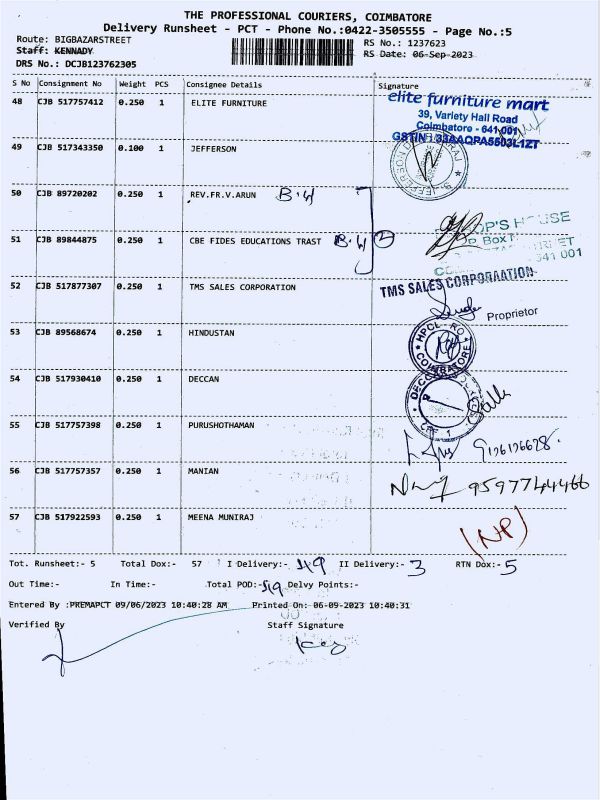 THE PROFESSIONAL COURIERS, COIMBATORE
Delivery Runsheet - PCT - Phone No.:0422-3505555 - Page No.:5
Route: BIGBAZARSTREET
RS No.: 1237623
Staff: KENNADY
RS Date: 06-Sep-2023
DRS No.: DCJB123762305
S No Consignment No Weight PCS Consignee Details Signature
48 CJB 517757412 0.250 1 ELITE FURNITURE
elite furniture mart
39, Variety Hall Road
Coimbatore - 641 001
GSTIN : 33AAQPA5503L1ZT
49 CJB 517343350 0.100 1 JEFFERSON
50 CJB 89720202 0.250 1 REV.FR.V.ARUN
51 CJB 89844875 0.250 1 CBE FIDES EDUCATIONS TRAST 2
OP'S HOUSE
P. Box
641 001
52 CJB 517877307 0.250 1 TMS SALES CORPORATION
TMS SALES CORPORAATION
Proprietor
53 CJB 89568674 0.250 1 HINDUSTAN
HPCL - RO
COIMBATORE
54 CJB 517930410 0.250 1 DECCAN
55 CJB 517757398 0.250 1 PURUSHOTHAMAN
56 CJB 517757357 0.250 1 MANIAN 9597744466
57 CJB 517922593 0.250 1 MEENA MUNIRAJ (NP)
Tot. Runsheet:- 5 Total Dox:- 57 I Delivery:- 49 II Delivery:- 3 RTN Dox:- 5
Out Time:- In Time:- Total POD:- 49 Delvy Points:-
Entered By :PREMAPCT 09/06/2023 10:40:28 AM Printed On: 06-09-2023 10:40:31
Verified By Staff Signature